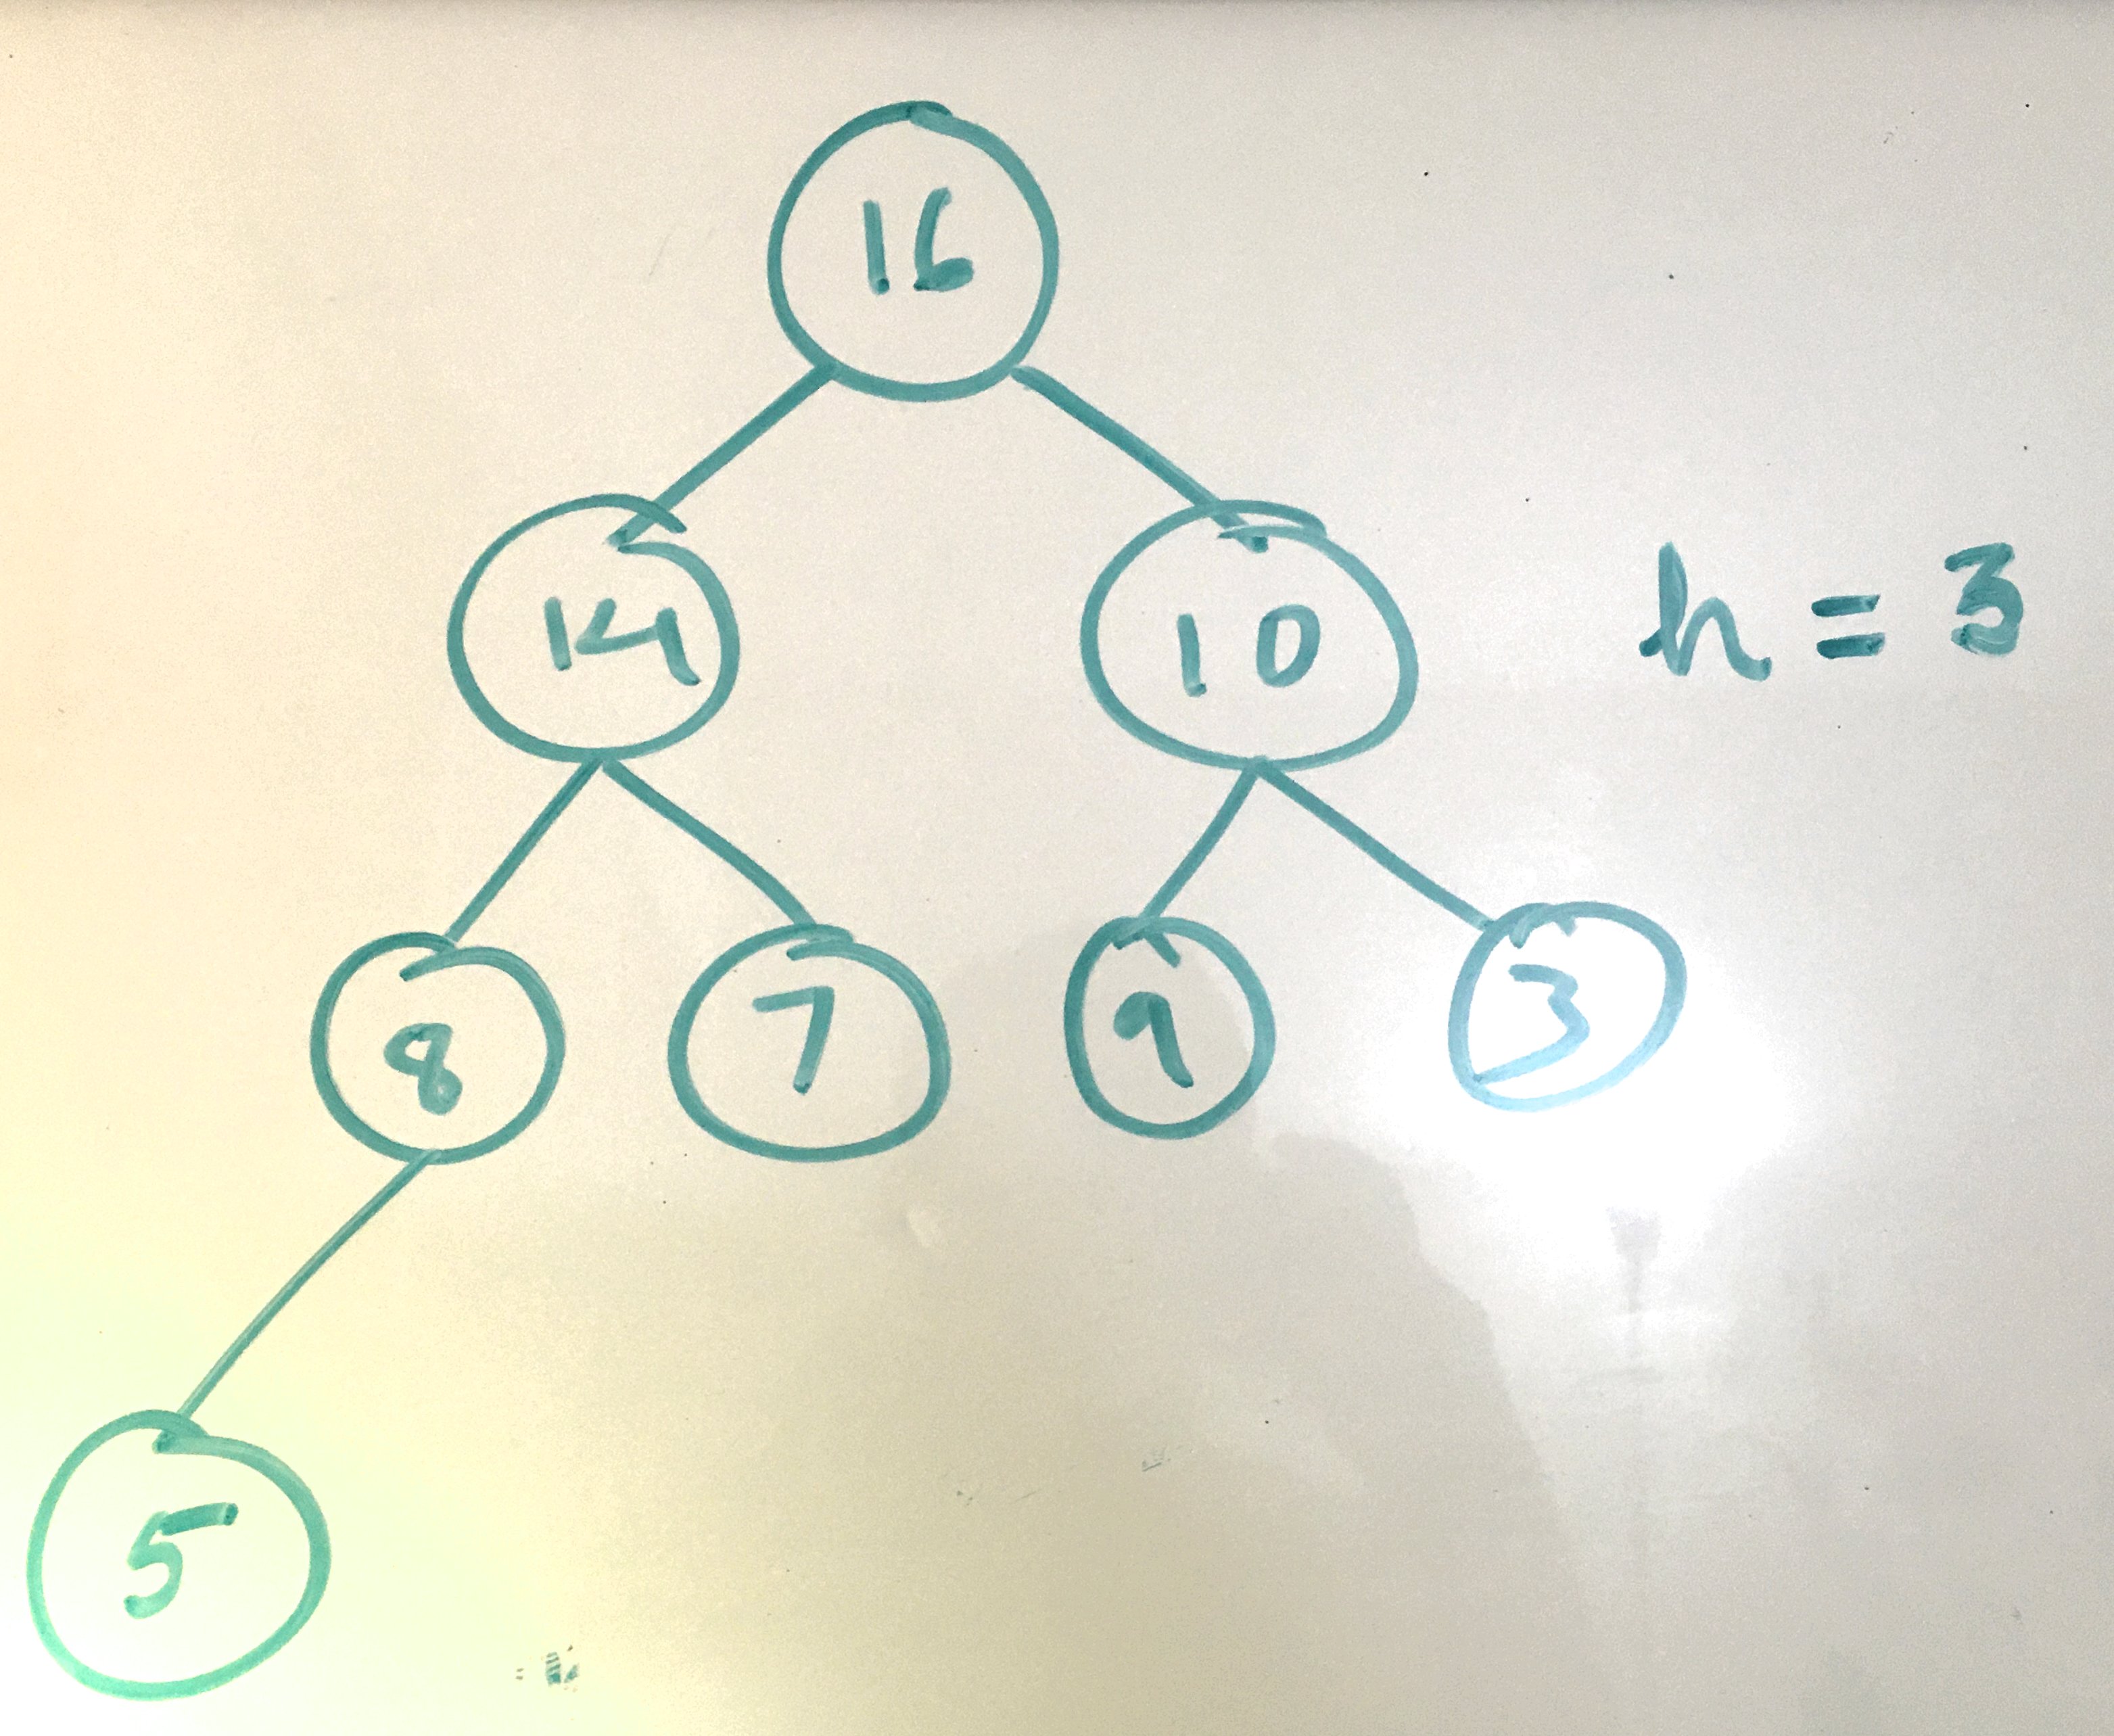 16
14 10 h = 3
8 7 9 3
5